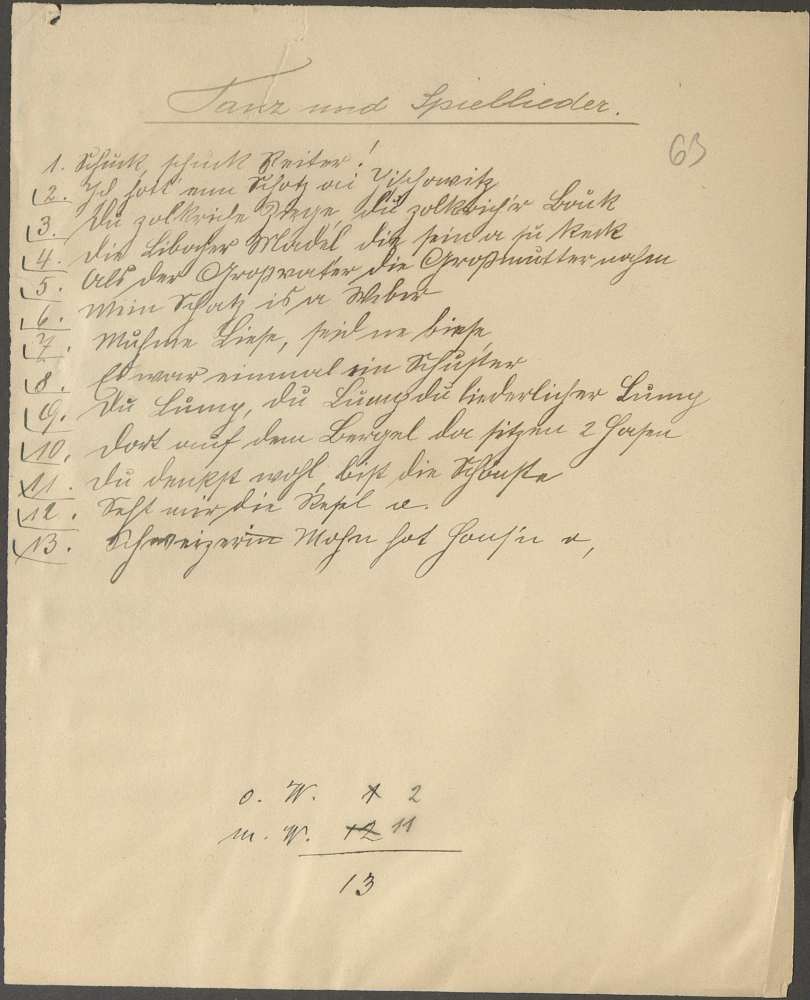 Tanz und Spiellieder.
63
1. Schuck, schuck Reiter!
2. Ich hott enn Schotz ai Tischowitz
3. Du zolkriche Ziege, du zolkrich'r Bouk
4. Die Libocher Madel die sein a su keck
5. Als der Großvater die Großmutter nahm
6. Mein Schatz is a Weber
7. Muhme Liese, seid ne biese
8. Es war einmal ein Schuster
9. Du Lump, du Lump du liederlicher Lump
10. Dort auf dem Bergel da sitzen 2 Hasen
11. Du denkst wohl, bist die Schönste
12. Seht mir die Resel a.
13. Schweizerin Mohn hot
o. W. 1 2
m. W. 12 11
13